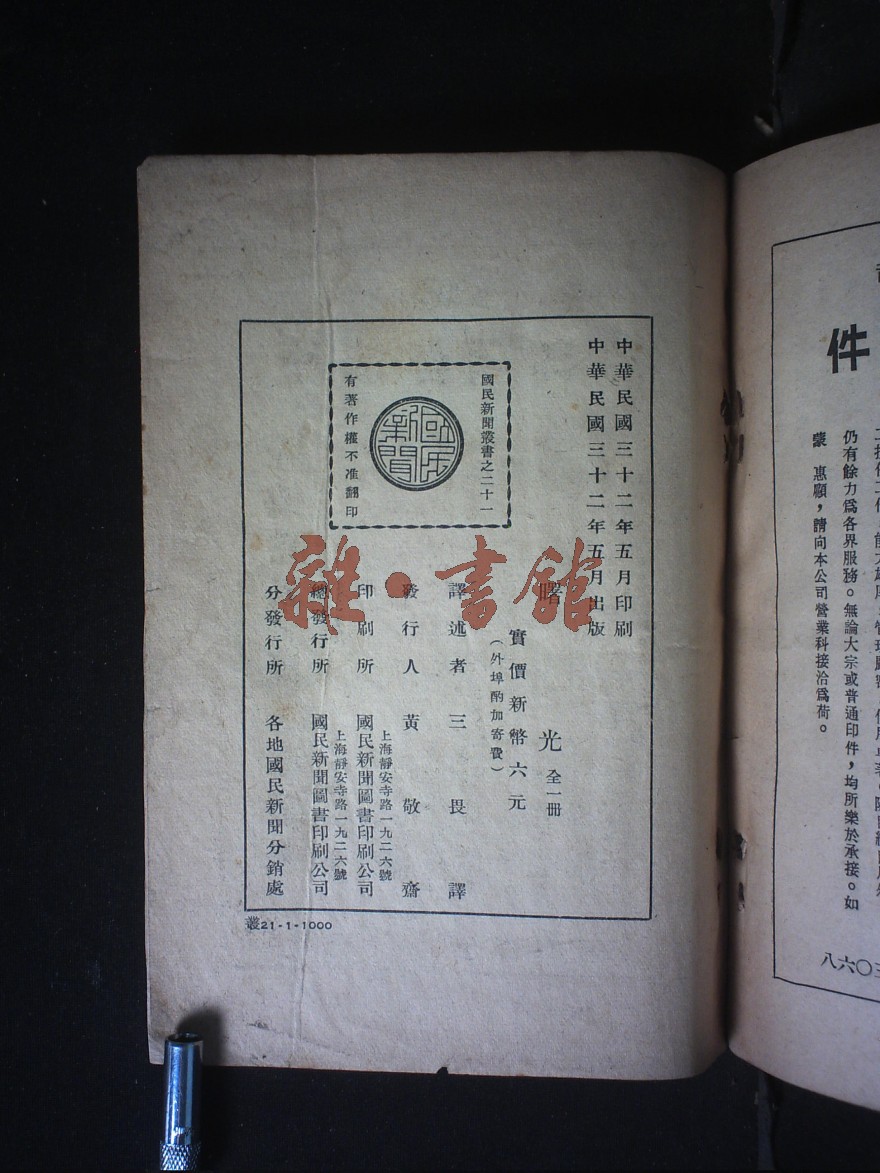 中華民國三十二年五月印刷
中華民國三十二年五月出版
曙光 全一冊
實價新幣六元
(外埠酌加寄費)
譯述者 三畏譯
發行人 黃敬齋
上海靜安寺路一九二六號
印刷所 國民新聞圖書印刷公司
上海靜安寺路一九二六號
總發行所 國民新聞圖書印刷公司
分發行所 各地國民新聞分銷處
國民新聞叢書之二十一
國民新聞
有著作權不准翻印
叢21-1-1000
雜·書館
件
仍有餘力爲各界服務。無論大宗或普通印件,均所樂於承接。如
蒙 惠顧,請向本公司營業科接洽爲荷。
八六〇三